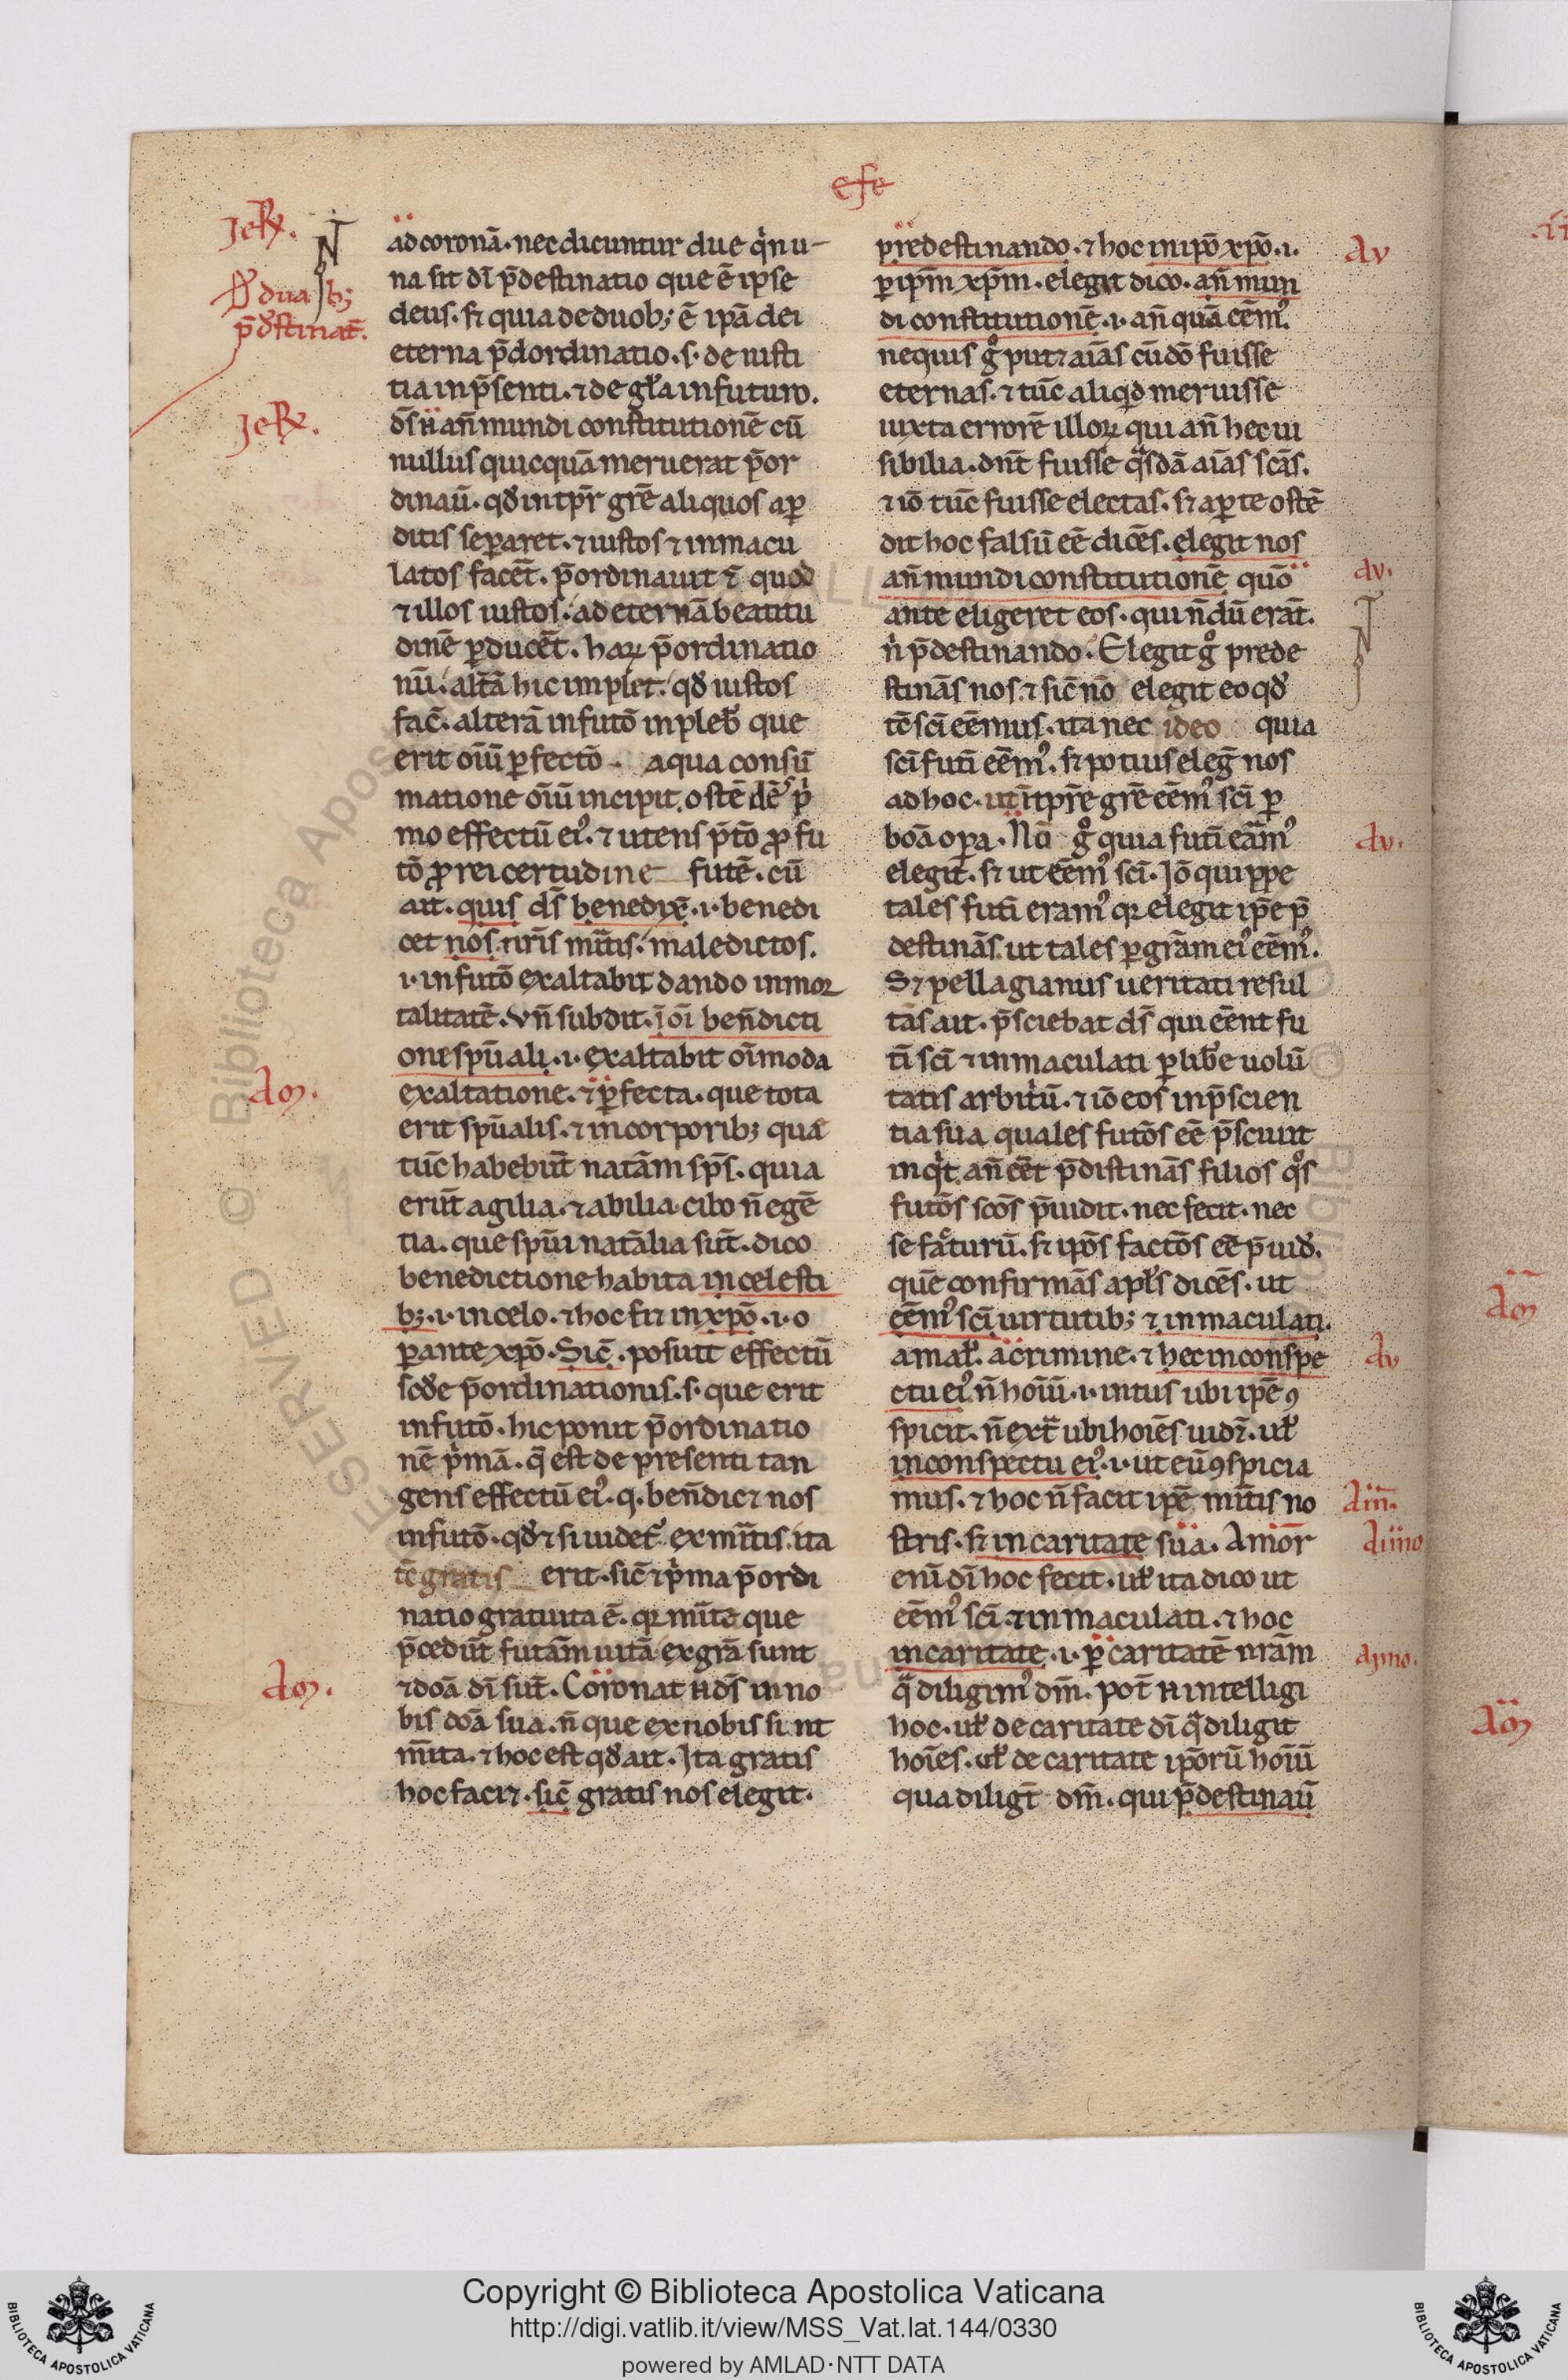 efe
Jeꝶ.
ꝺe duabꝫ
p̄ꝺstinat̄.
Jeꝶ.
aꝺ coronā. nec dicuntur due qͥn u-
na sit dī p̄destinatio que ē ipse
deus. sꝫ quia de duobꝫ ē ipā dei
eterna p̄dordinatio. s. de iusti
tia in p̄senti. ⁊ de gl̄a in futuro.
ds̄ .n. an̄ mundi constitutionē cū
nullus quicquā meruerat p̄or
dinaū. qđ in tp̄r gr̄e aliquos a ꝑ
ditis seꝑaret. ⁊ iustos ⁊ inmacu
latos facet̄. p̄ordinauit ⁊̄ quod
⁊ illos iustos. ad eternā beatitu
dinē ꝑducet̄. haꝝ p̄ordinatio
nū. alt̄ā hic implet. qđ iustos
fac̄. alterā in futō inpleb̄ que
erit oīū ꝑfectō - a qua consū
matione oīū incipit. ostēdēs pͥ
mo effectū eiꝰ. ⁊ utens p̄tō ꝓ fu
tō ꝓ rei certudine futē. cū
ait. quis ds̄ benedix̄. i. benedi
cet nos. nr̄is mītis. maledictos.
i. in futō exaltabit dando inmor
talitatē. vn̄ subdit. ī oī ben̄dicti
one spūali. i. exaltabit oīmoda
exaltatione. ⁊ ꝑfecta. que tota
erit spūalis. ⁊ in corporibꝫ qua
tūc habebūt natām sp̄s. quia
erūt agilia. ⁊ abilia. cibo n̄ egē
tia. que spūi natālia sūt. dico
benedictione habita in celesti
bꝫ. i. in celo. ⁊ hoc fit in xp̄o. i. o
ꝑante xp̄o. Sic̄. posuit effectū
scđe p̄ordinationis. s. que erit
in futō. hic ponit p̄ordinatio
nē pͥmā. q̄ est de presenti tan
gens effectū eiꝰ. q. ben̄dicꝫ nos
in futō. qđ ⁊ si uidet᷑ ex mītis. ita
tē gratis erit. sic̄ ⁊ pͥma p̄ordi
natio gratuita ē. qꝛ mīta que
p̄cedūt futām uitā ex gr̄a sunt
⁊ doā dī sūt. Coronat .n. ds̄ in no
bis doā sua. n̄ que ex nobis sunt
mīta. ⁊ hoc est qđ ait. Ita gratis
hoc facit. sic̄ gratis nos elegit.
Aꝯ.
Aꝯ.
predestinando. ⁊ hoc in ip̄o xp̄o. i.
ꝑ ip̄m xp̄m. elegit dico. an̄ mun
di constitutionē. i. an̄ quā eēmꝰ.
ne quis gͦ putꝫ aīas cū dō fuisse
eternas. ⁊ tūc aliqͥd meruisse
iuxta errorē illoꝝ qui an̄ hec ui
sibilia. dnt̄ fuisse qͣsdā aīas scās.
⁊ iō tūc fuisse electas. sꝫ aꝑte ostē
dit hoc falsū eē dicēs. elegit nos
an̄ mundi constitutionē quō
ante eligeret eos. qui n̄dū erāt.
nͥ p̄destinando. Elegit gͦ prede
stinās nos. ⁊ sic̄ nō elegit eo qđ
tē sci eēmus. ita nec ideo quia
scī futī eēmꝰ. sꝫ potius eleḡ nos
ad hoc. ut ī tp̄re gr̄e eēmꝰ scī ꝑ
boā opa. Nō gͦ quia futī eāmꝰ
elegit. sꝫ ut eēmꝰ scī. Iō quippe
tales futī eramꝰ qꝛ elegit ip̄e p̄
destinās. ut tales ꝑ gr̄am eiꝰ eēmꝰ.
Sꝫ pellagianus ueritati resul
tās ait. p̄sciebat ds̄ qui eēnt fu
tī scī ⁊ inmaculati ꝑ lib̄e uolū
tatis arbitͥū. ⁊ iō eos in p̄scien
tia sua quales futōs eē p̄sciuit
inqͥt. an̄ eēt p̄distinās filios qͦs
futōs scōs p̄uidit. nec fecit. nec
se faͨturū. sꝫ ip̄os factōs eē p̄uid̄.
quē confirmās apl̄s dicēs. ut
eēmꝰ scī uirtutibꝫ ⁊ inmaculati.
a mal̄. a crimine. ⁊ hec in conspe
ctu eiꝰ. n̄ hoīū. i. intus ubi ip̄e ꝯ
spicit. n̄ extͣ ubi hoīes uidꝫ. ul̄
in conspectu eiꝰ. i. ut eū ꝯspicia
mus. ⁊ hoc n̄ facit ip̄e mītis no
stris. sꝫ in caritate sua. Amor
enī dī hoc fecit. ul̄ ita dico ut
eēmꝰ scī. ⁊ inmaculati. ⁊ hoc
in caritate. i. ꝑ caritatē nr̄am
qͣ diligimꝰ dm̄. pot̄ .n. intelligi
hoc. ul̄ de caritate dī qͣ diligit
hoīes. ul̄ de caritate ip̄orū hoīū
qua diligt̄ dm̄. qui p̄destinaū
Av
Av.
Av.
Av
Aīn.
Aimo
Aimo.
Aꝯ
Aꝯ
Copyright © Biblioteca Apostolica Vaticana
http://digi.vatlib.it/view/MSS_Vat.lat.144/0330
powered by AMLAD·NTT DATA
BIBLIOTECA APOSTOLICA VATICANA
BIBLIOTECA APOSTOLICA VATICANA